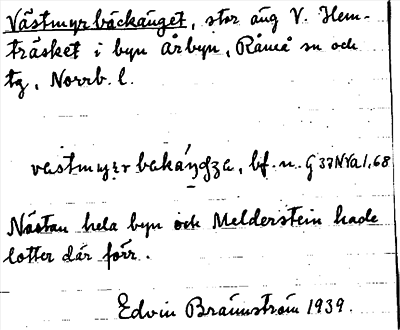 Västmyrbäckänget, stor äng V. Hem-
träsket i byn Årbyn, Råneå sn och
tg, Norrb. l.
bf. n. G 37 NVa 1,68
Nästan hela byn och Melderstein hade
lotter där förr.
Edvin Brännström 1939.